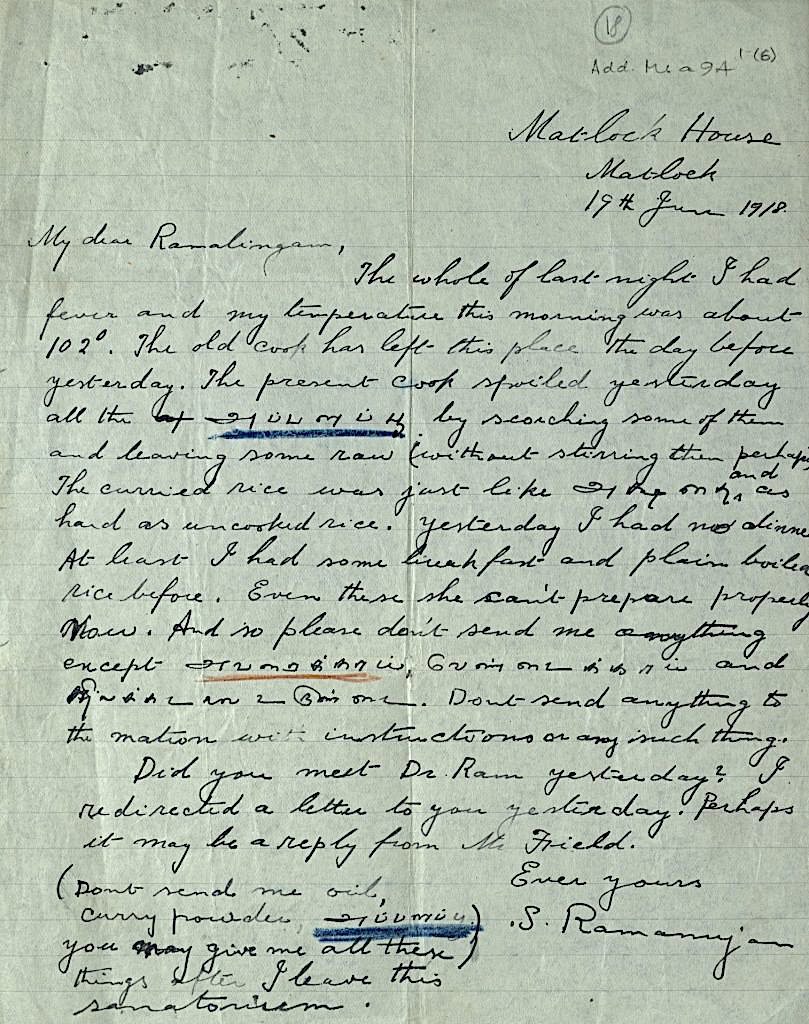 18
Add. Ms a 94 1-(6)
Matlock House
Matlock
19th June 1918.
My dear Ramalingam,
The whole of last night I had
fever and my temperature this morning was about
102°. The old cook has left this place the day before
yesterday. The present cook spoiled yesterday
all the by scorching some of them
and leaving some raw (without stirring them perhaps
The curried rice was just like and as
hard as uncooked rice. Yesterday I had no dinne
At least I had some breakfast and plain boiled
rice before. Even these she can't prepare properly
now. And so please don't send me anything
except and
Dont send anything to
the matron with instructions or any such thing.
Did you meet Dr. Ram yesterday? I
redirected a letter to you yesterday. Perhaps
it may be a reply from Mr Field.
Ever yours
S. Ramanujan
(Dont send me oil,
curry powder, )
you may give me all these)
things after I leave this
sanatorium.